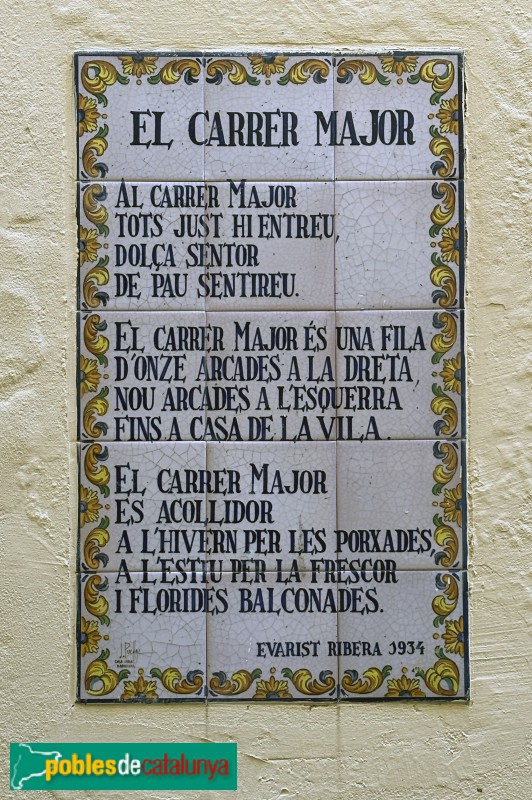 EL CARRER MAJOR
AL CARRER MAJOR
TOTS JUST HI ENTREU,
DOLÇA SENTOR
DE PAU SENTIREU.
EL CARRER MAJOR ÉS UNA FILA
D'ONZE ARCADES A LA DRETA,
NOU ARCADES A L'ESQUERRA,
FINS A CASA DE LA VILA.
EL CARRER MAJOR
ES ACOLLIDOR
A L'HIVERN PER LES PORXADES,
A L'ESTIU PER LA FRESCOR
I FLORIDES BALCONADES.
EVARIST RIBERA 1934
poblesdecatalunya